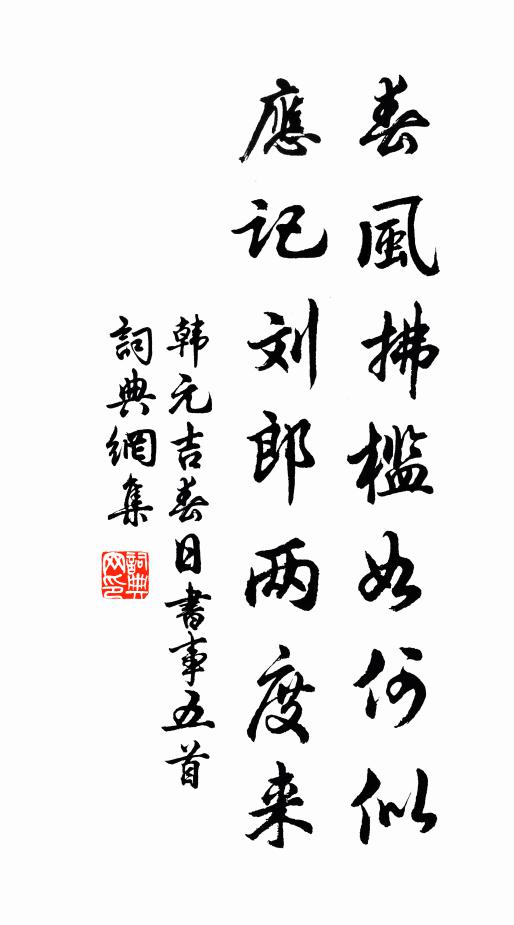 春風拂檻如何似
應記刘郎两度来
韩元吉春日書事五首
詞典網集
詞典网印